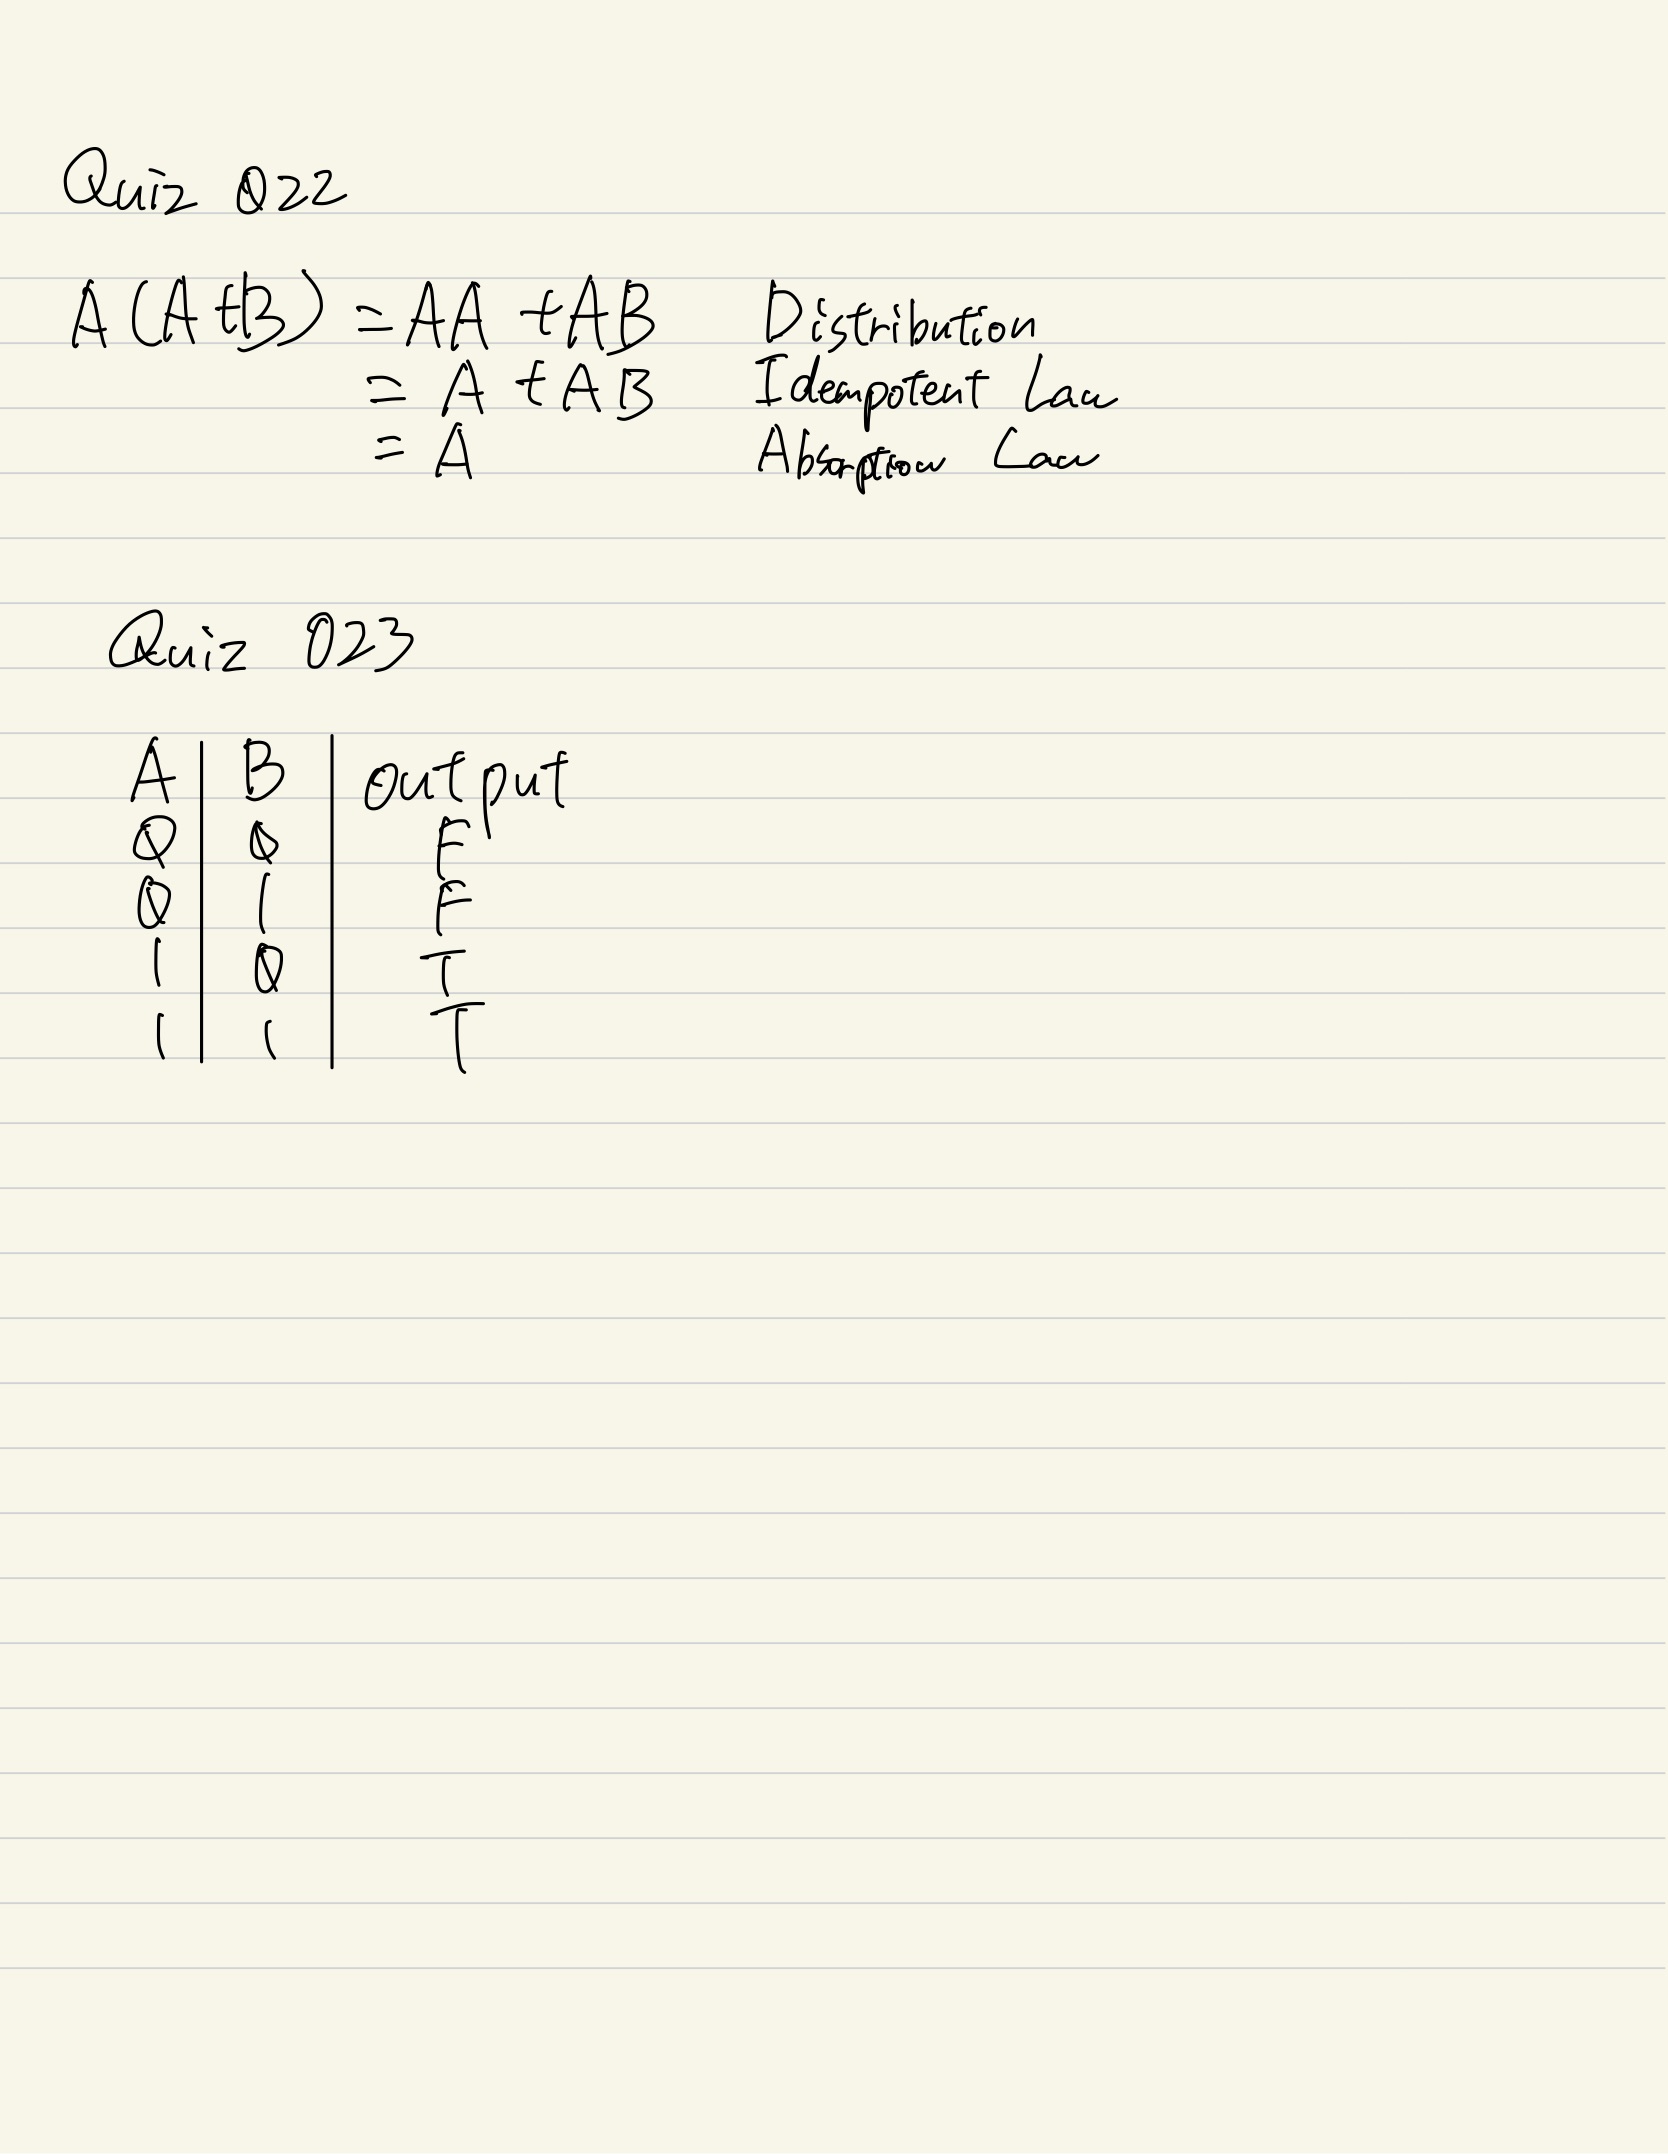 Quiz 022
A(A+B) = AA + AB Distribution
= A + AB Idempotent Law
= A Absorption Law
Quiz 023
A B output
0 0 F
0 1 F
1 0 T
1 1 T